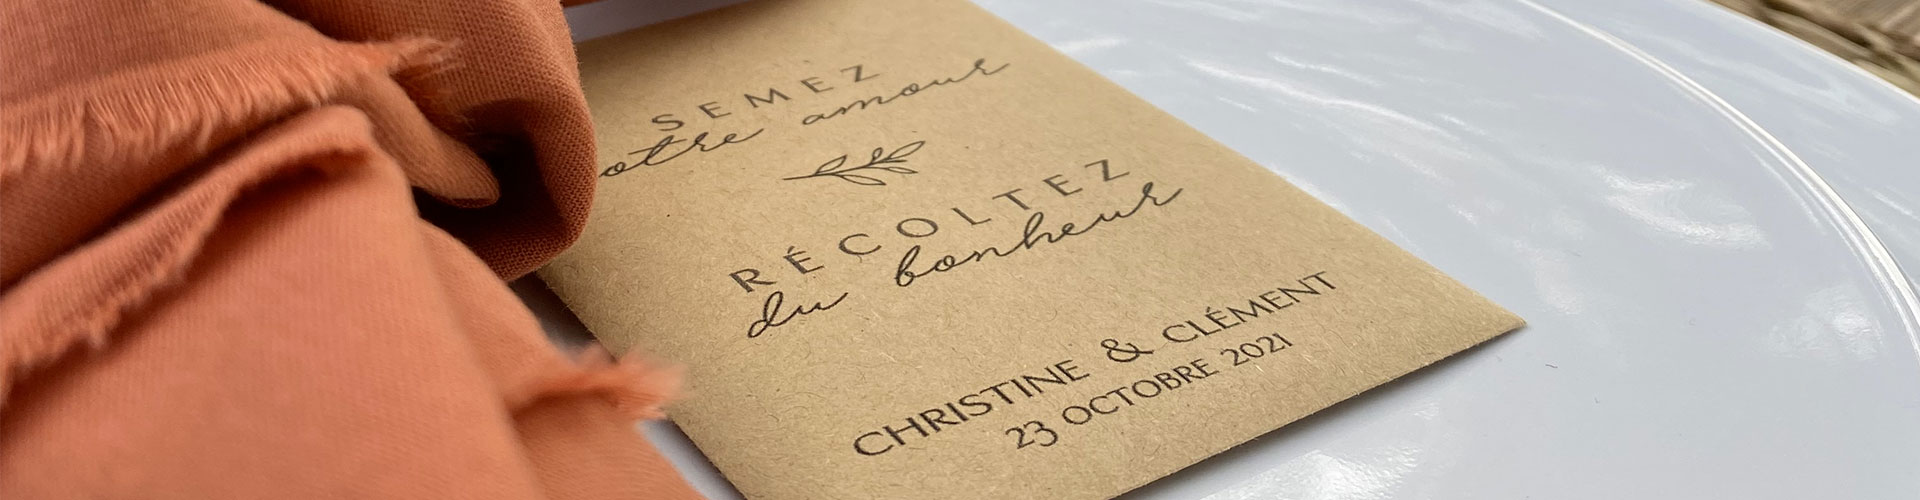 SEMEZ
amour
RÉCOLTEZ
du bonheur
CHRISTINE & CLÉMENT
23 OCTOBRE 2021